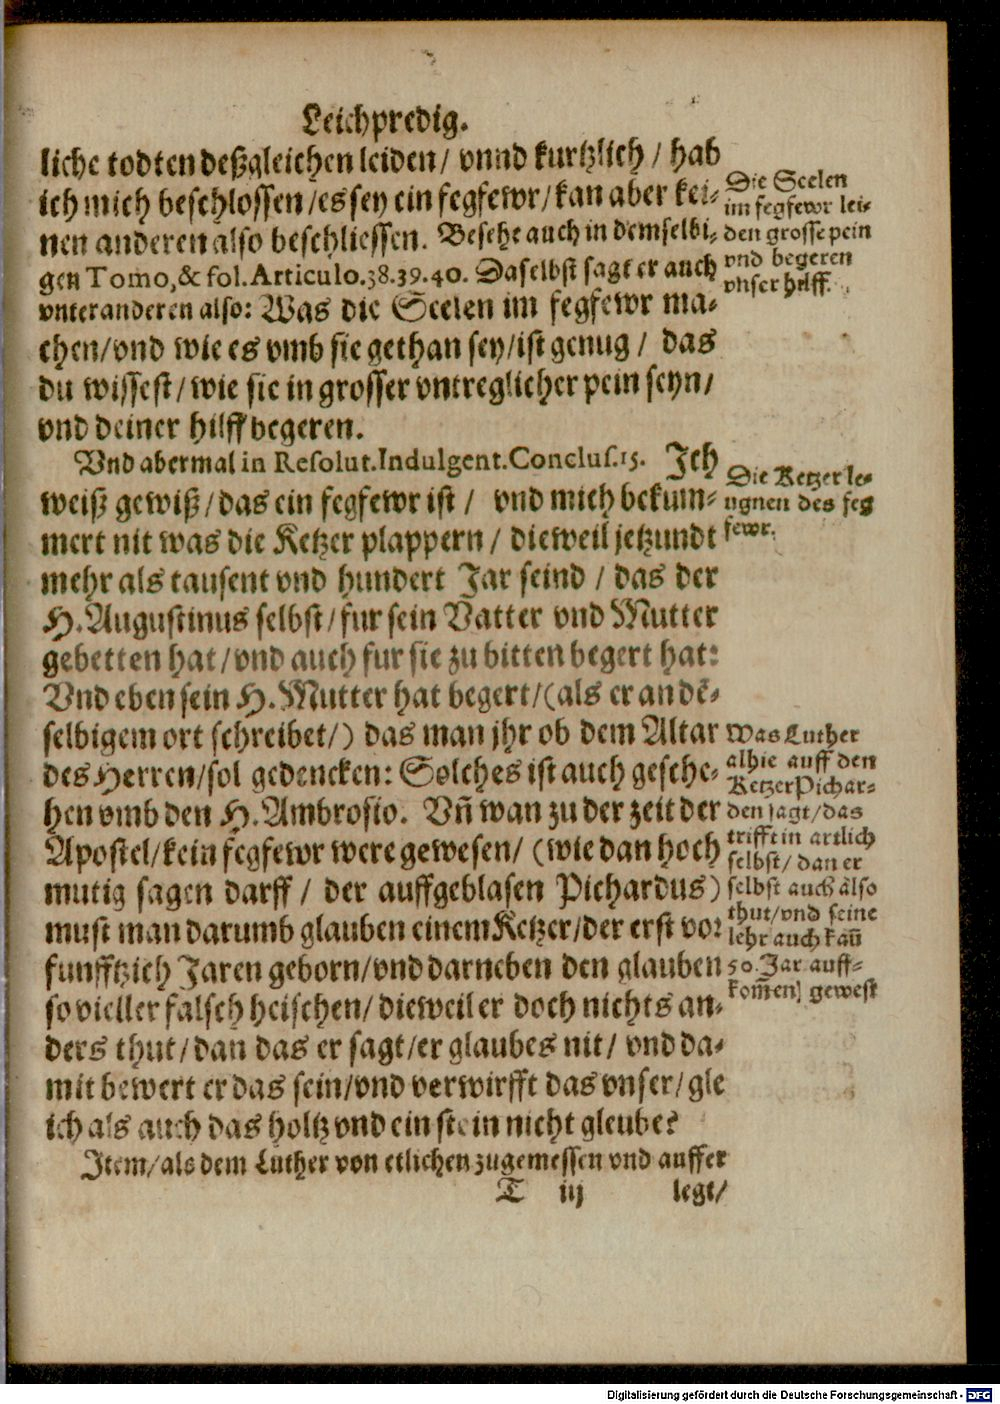 Leichpredig.
liche todten deßgleichen leiden/ vnnd kurtzlich / hab
ich mich beschlossen/es sey ein fegfewr/kan aber kei-
nen anderen also beschliessen. Besehe auch in demselbi-
gen Tomo,& fol.Articulo.38.39.40. Daselbst sagt er auch
vnter anderen also: Was die Seelen im fegfewr ma-
chen/vnd wie es vmb sie gethan sey/ist genug / das
du wissest/wie sie in grosser vntreglicher pein seyn/
vnd deiner hilff begeren.
Die Seelen
im fegfewr lei-
den grosse pein
vnd begeren
vnser hilff.
Vnd abermal in Resolut.Indulgent.Conclus.15. Jch
weiß gewiß/das ein fegfewr ist / vnd mich bekum-
mert nit was die Ketzer plappern / dieweil jetzundt
mehr als tausent vnd hundert Jar seind / das der
H.Augustinus selbst/fur sein Vatter vnd Mutter
gebetten hat/vnd auch fur sie zu bitten begert hat:
Vnd eben sein H.Mutter hat begert/(als er an dē-
selbigem ort schreibet/) das man jhr ob dem Altar
des Herren/sol gedencken: Solches ist auch gesche-
hen vmb den H.Ambrosio. Vñ wan zu der zeit der
Apostel/kein fegfewr were gewesen/ (wie dan hoch
mutig sagen darff / der auffgeblasen Pichardus)
must man darumb glauben einem Ketzer/der erst vor
funfftzich Jaren geborn/vnd darneben den glauben
so vieller falsch heischen/dieweil er doch nichts an-
ders thut/dan das er sagt/er glaubes nit/ vnd da-
mit bewert er das sein/vnd verwirfft das vnser/gle
ich als auch das holtz vnd ein stein nicht gleube?
Die Ketzer le-
ugnen des feg
fewr.
Was Luther
alhie auff den
Ketzer Pichar-
den sagt/das
trifft in artlich
selbst/dan er
selbst auch also
thut/vnd seine
lehr auch kaū
50.Jar auff-
kom̄en gewest
Item/als dem Luther von etlichen zugemessen vnd auffer
T iij legt/
Digitalisierung gefördert durch die Deutsche Forschungsgemeinschaft - DFG